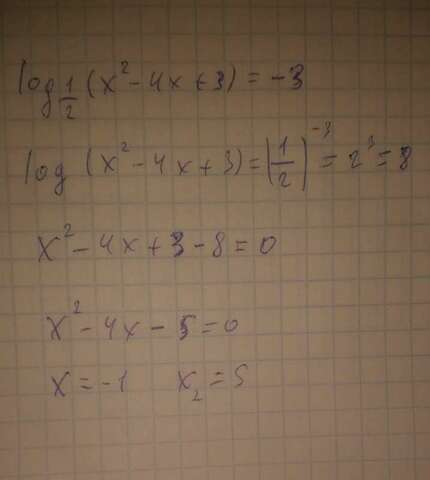 log 1/2 (x² - 4x + 3) = -3
log (x² - 4x + 3) = (1/2)⁻³ = 2³ = 8
x² - 4x + 3 - 8 = 0
x² - 4x - 5 = 0
x = -1 x₂ = 5